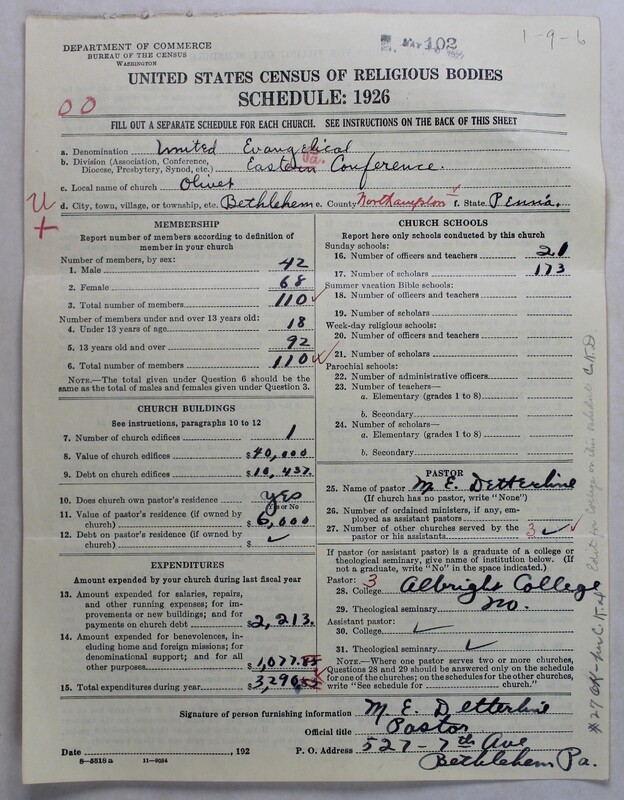 1-9-6
102
DEPARTMENT OF COMMERCE
BUREAU OF THE CENSUS
WASHINGTON
UNITED STATES CENSUS OF RELIGIOUS BODIES
SCHEDULE: 1926
00
FILL OUT A SEPARATE SCHEDULE FOR EACH CHURCH. SEE INSTRUCTIONS ON THE BACK OF THIS SHEET
a. Denomination United Evangelical
b. Division (Association, Conference, Diocese, Presbytery, Synod, etc.) Eastern Pa. Conference.
c. Local name of church Olivet
d. City, town, village, or township, etc. Bethlehem e. County Northampton f. State Penna.
U
+
MEMBERSHIP
Report number of members according to definition of
member in your church
Number of members, by sex:
1. Male 42
2. Female 68
3. Total number of members 110
Number of members under and over 13 years old:
4. Under 13 years of age 18
5. 13 years old and over 92
6. Total number of members 110
NOTE.—The total given under Question 6 should be
the same as the total of males and females given under Question 3.
CHURCH BUILDINGS
See instructions, paragraphs 10 to 12
7. Number of church edifices 1
8. Value of church edifices $40,000
9. Debt on church edifices $10,437.
10. Does church own pastor's residence yes
(Yes or No)
11. Value of pastor's residence (if owned by
church) $6,000
12. Debt on pastor's residence (if owned by
church) $ ✓
EXPENDITURES
Amount expended by your church during last fiscal year
13. Amount expended for salaries, repairs,
and other running expenses; for im-
provements or new buildings; and for
payments on church debt $2,213.
14. Amount expended for benevolences, in-
cluding home and foreign missions; for
denominational support; and for all
other purposes $1,077.85
15. Total expenditures during year $3290.85
CHURCH SCHOOLS
Report here only schools conducted by this church
Sunday schools:
16. Number of officers and teachers 21
17. Number of scholars 173
Summer vacation Bible schools:
18. Number of officers and teachers
19. Number of scholars
Week-day religious schools:
20. Number of officers and teachers
21. Number of scholars
Parochial schools:
22. Number of administrative officers
23. Number of teachers—
a. Elementary (grades 1 to 8)
b. Secondary
24. Number of scholars—
a. Elementary (grades 1 to 8)
b. Secondary
PASTOR
25. Name of pastor M. E. Detterline
(If church has no pastor, write "None")
26. Number of ordained ministers, if any, em-
ployed as assistant pastors
27. Number of other churches served by the
pastor or his assistants 3 ✓
If pastor (or assistant pastor) is a graduate of a college or
theological seminary, give name of institution below. (If
not a graduate, write "No" in the space indicated.)
Pastor: 3
28. College Albright College
29. Theological seminary No.
Assistant pastor:
30. College ✓
31. Theological seminary ✓
NOTE.—Where one pastor serves two or more churches,
Questions 28 and 29 should be answered only on the schedule
for one of the churches; on the schedules for the other churches,
write "See schedule for church."
Signature of person furnishing information M. E. Detterline
Official title Pastor
Date , 192 P. O. Address 527-7th Ave
8-5518a 11-9034
Bethlehem Pa.